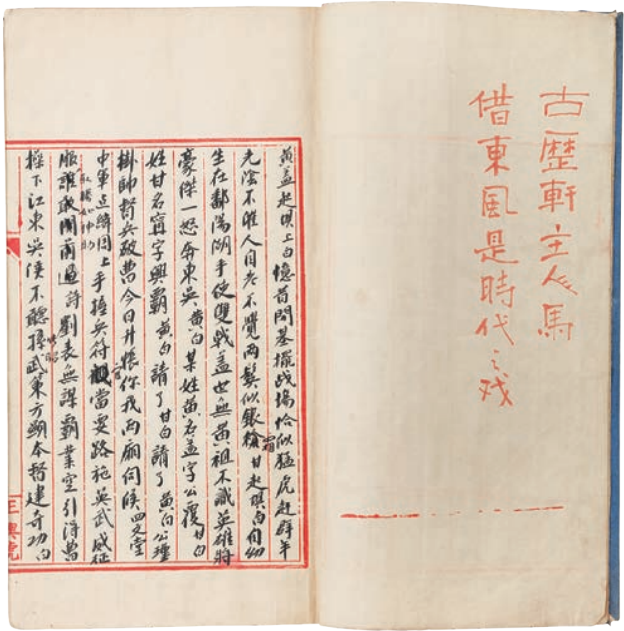 古歷軒主人馬
借東風是時代之戏
黄盖起唄上白憶昔開基擺战場恰似猛虎赶群羊
光陰不催人自老不覺両鬓似銀霜甘起唄白自幼
生在鄱陽湖手使雙戟盖世無黄祖不識英雄将
豪傑一怒奔東吳黄白某姓黄名盖字公覆甘白
姓甘名寗字興覇黄白請了甘白請了黄白公瑾
掛帥督兵破曹今日升帳你我両廂伺候四文堂
中軍周上手捧兵符當要路施英武威征
服誰敢関前過詩劉表無謀覇業空引得曹
取勝如神助
操下江東吳侯不聽孫武東方顯本督建奇功白